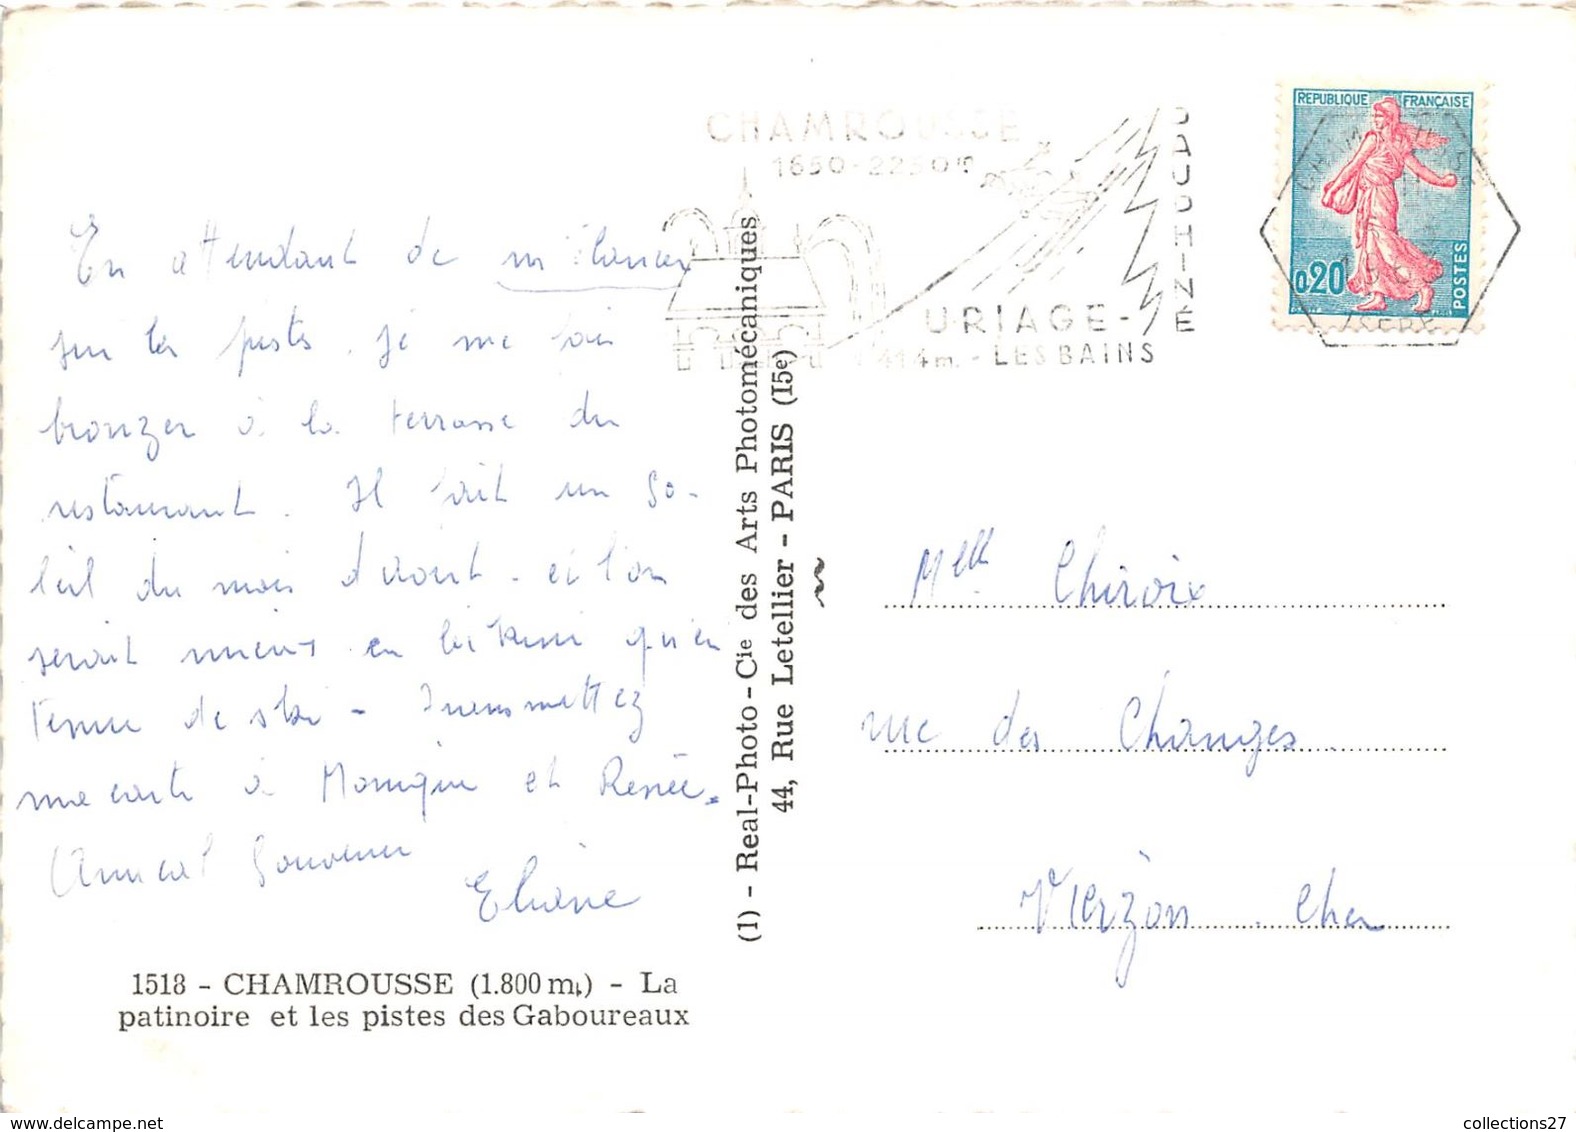 CHAMROUSSE
1650-2250m
DAUPHINE
URIAGE-
414m.-LES BAINS
REPUBLIQUE FRANÇAISE
0,20
POSTES
ISERE
En attendant de m'élancer
sur les pistes, je me fais
bronzer à la terrasse du
restaurant. Il fait un so-
leil du mois d'août - et l'on
serait mieux en bikini qu'en
tenue de ski - Transmettez
ma carte à Monique et Renée.
Amical Souvenir
Eliane
1518 - CHAMROUSSE (1.800 m.) - La
patinoire et les pistes des Gaboureaux
(1) - Real-Photo - Cie des Arts Photomécaniques
44, Rue Letellier - PARIS (15e)
Melle Chiroix
rue des Changes.
Vierzon. Cher
collections27